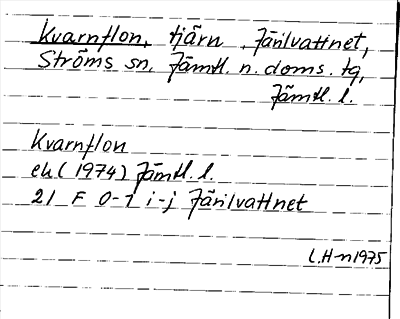 Kvarnflon, tjärn, Järilvattnet,
Ströms sn, Jämtl. n. doms. tg,
Jämtl. l.
Kvarnflon
ek (1974) Jämtl. l.
21 F 0-1 i-j Järilvattnet
L.H-n 1975